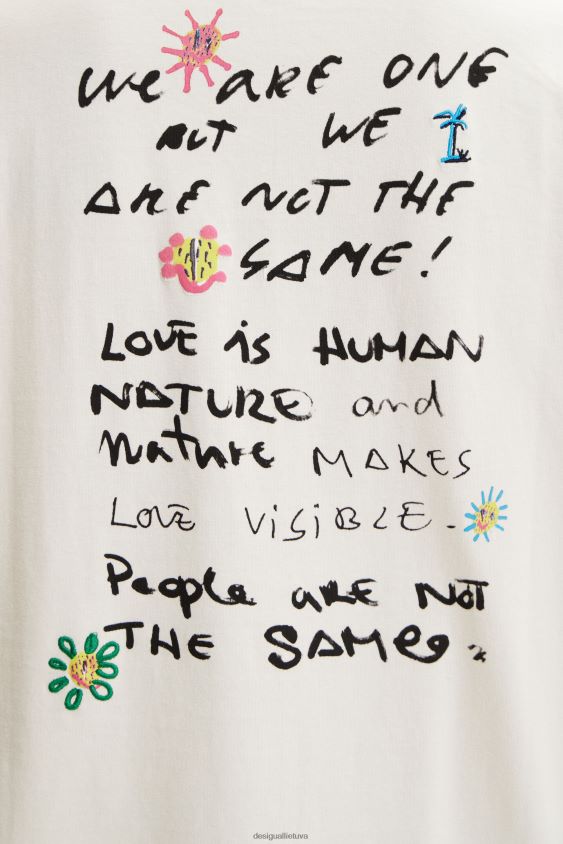 We ARE ONE
BUT WE
ARE NOT THE
SAME!
LOVE is HUMAN
NATURE and
Nature MAKES
LOVE ViSiBLE.
People ARE NOT
THE SAMe.
desiguallietuva